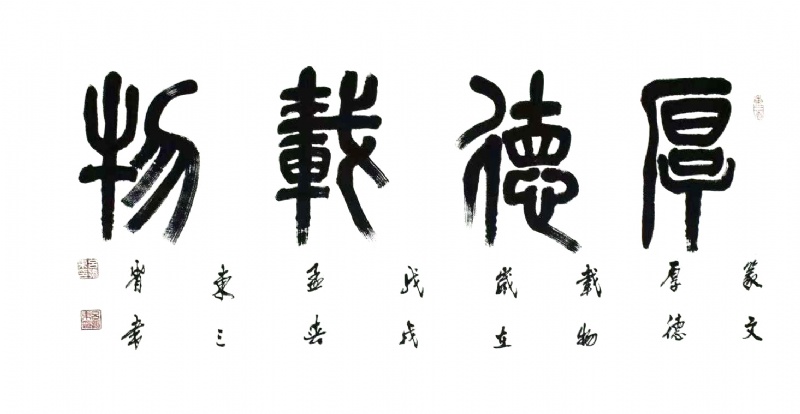 厚德載物
篆文
厚德
載物
歲在
戊戌
孟春
東三
書